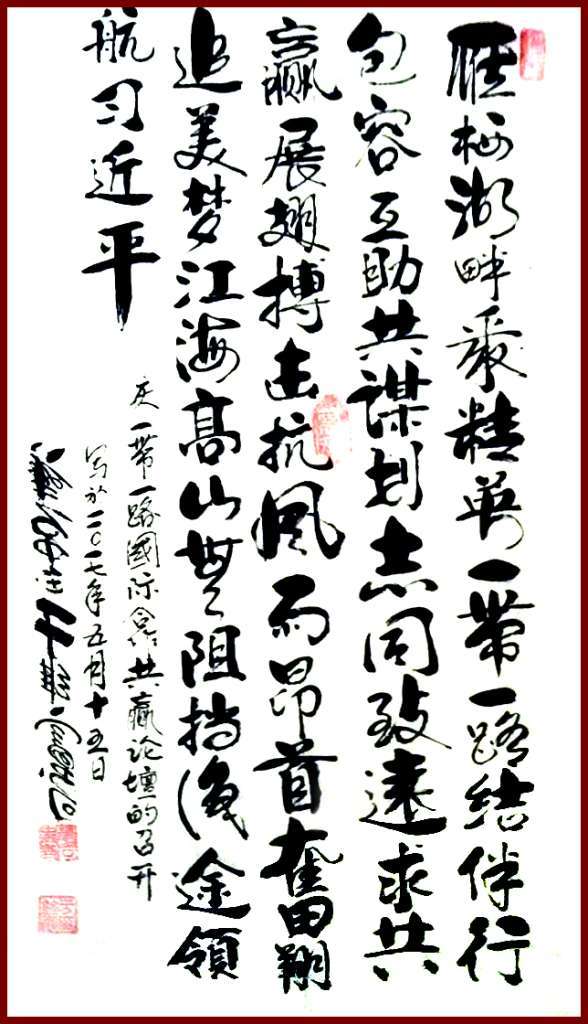 雁栖湖畔聚精英一帶一路结伴行
包容互助共谋划志同致远求共
赢展翅搏击抗风雨昂首奮翔
追美梦江海高山無阻挡途领
航习近平
庆一帶一路國际合作共赢论壇的召开
写於二〇一七年五月十五日